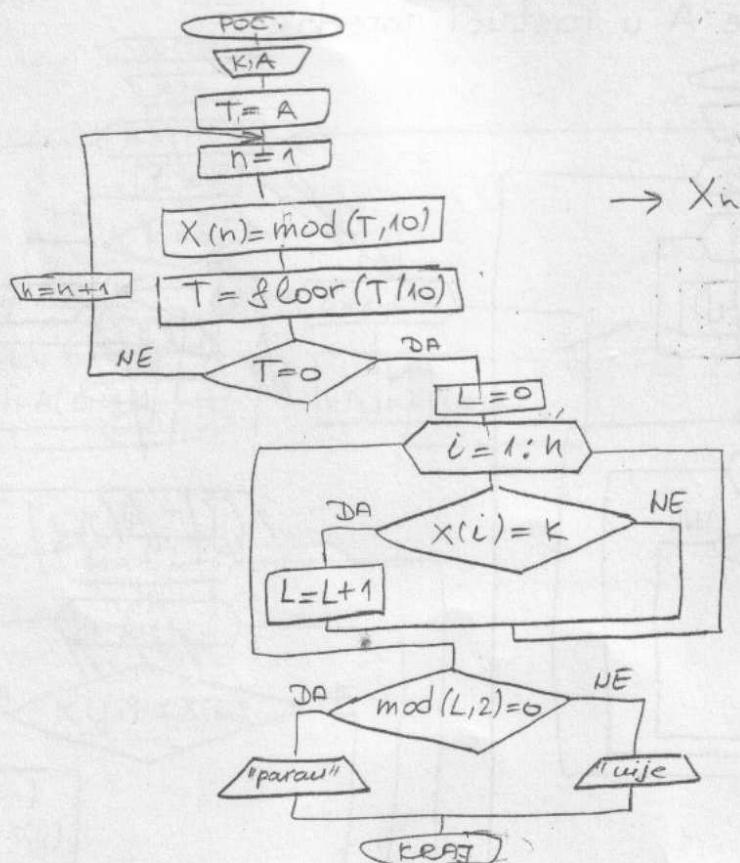 e A u
POČ.
K, A
T = A
n = 1
X(n) = mod(T,10)
→ Xn
n = n+1
T = floor(T/10)
NE
T=0
DA
L=0
i = 1:n
DA
x(i) = K
NE
L = L+1
DA
mod(L,2)=0
NE
"paran"
"nije
KRAJ